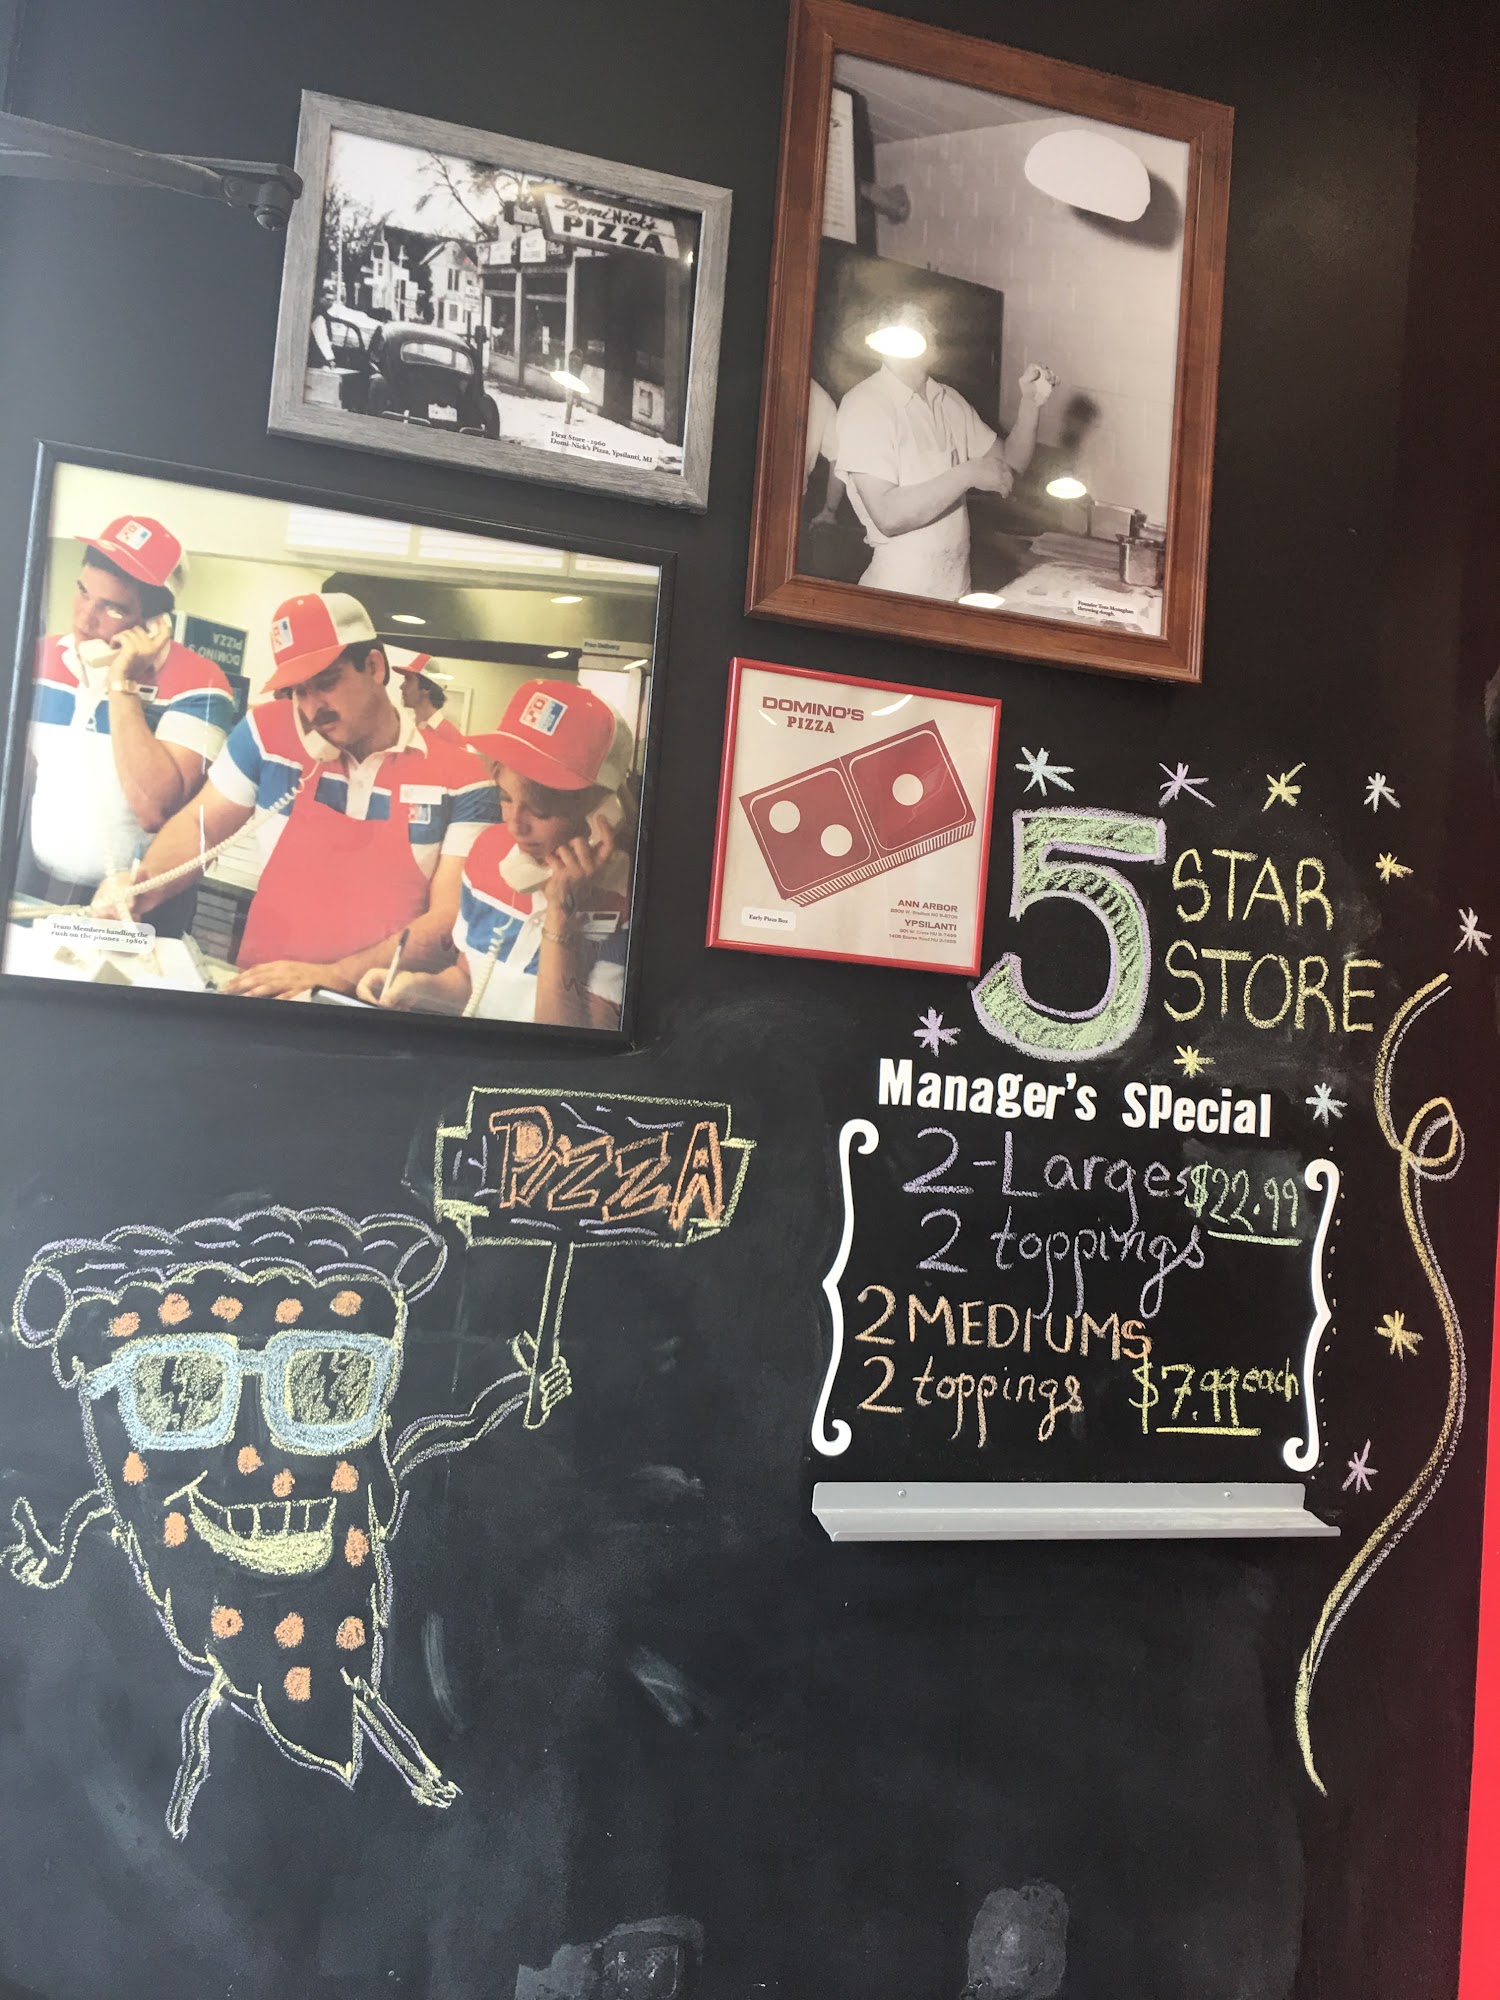 Domi Nick's
PIZZA
First Store - 1960
Domi-Nick's Pizza, Ypsilanti, MI
Founder Tom Monaghan
throwing dough.
DOMINO'S
PIZZA
Free Delivery
Team Members handling the
rush on the phones - 1980's
DOMINO'S
PIZZA
Early Pizza Box
ANN ARBOR
YPSILANTI
5 STAR
STORE
Manager's Special
2-Larges $22.99
2 toppings
2 MEDIUMS
2 toppings $7.99 each
PIZZA